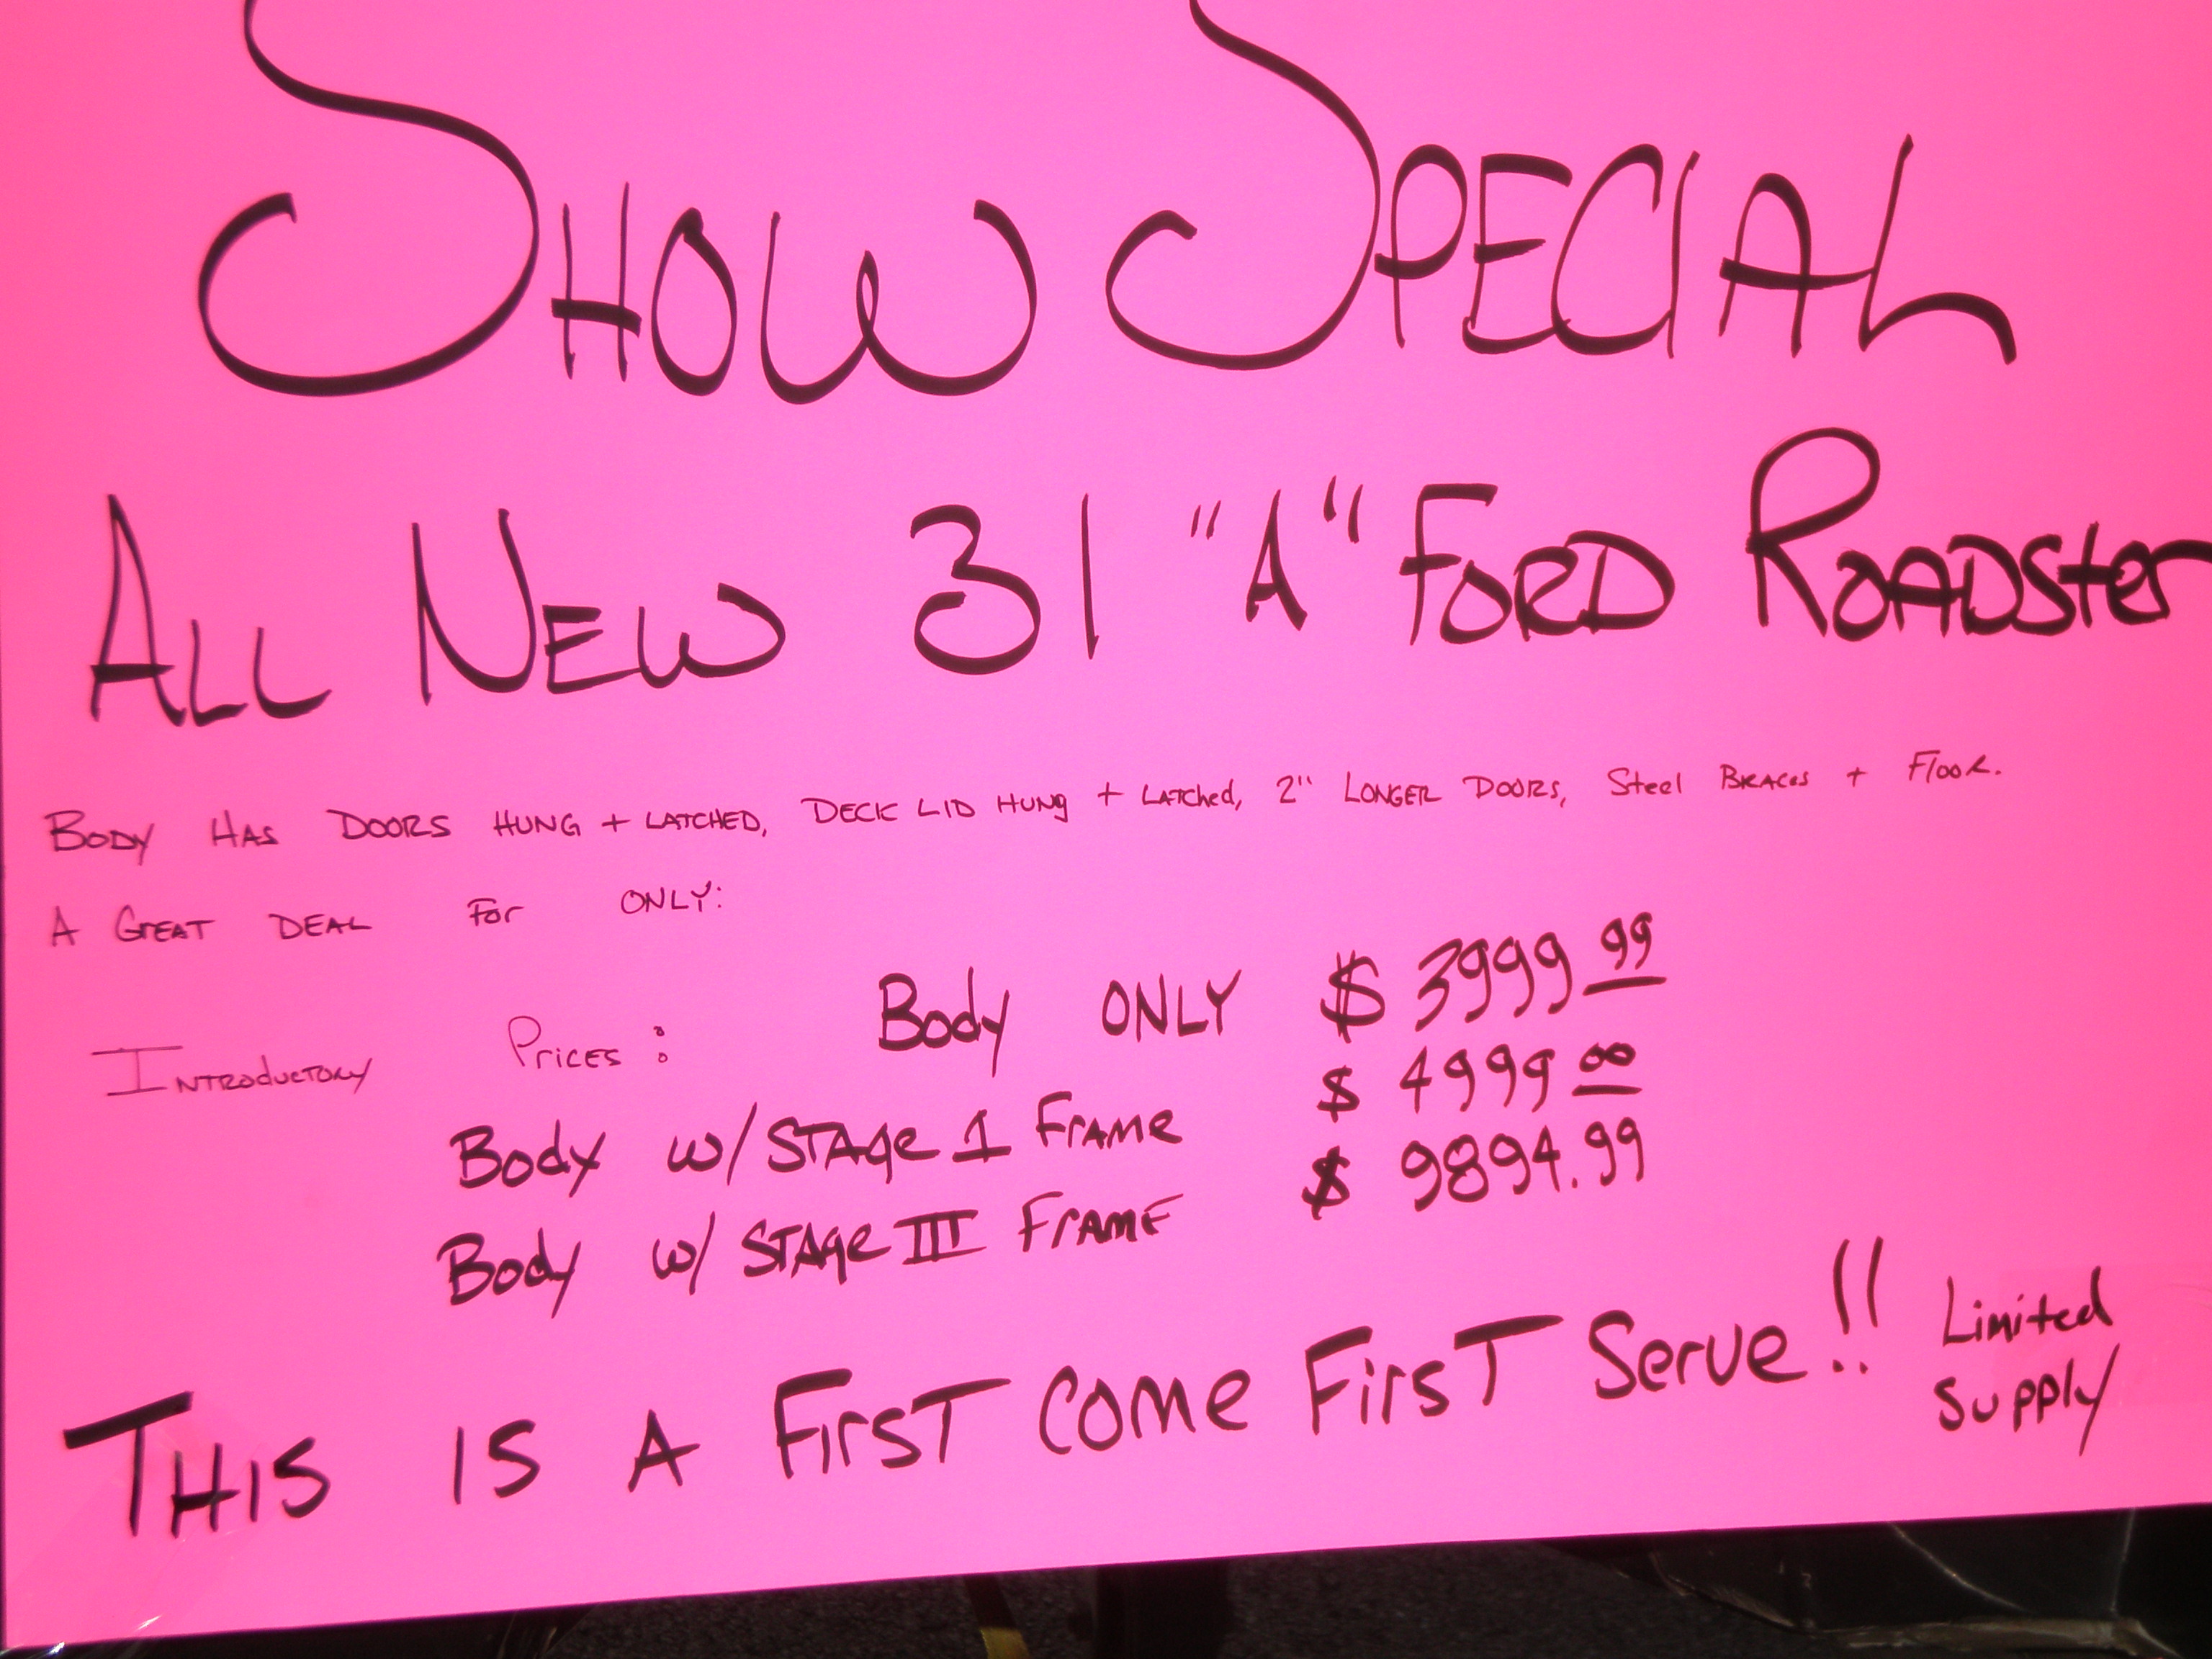 SHOW SPECIAL
ALL NEW 31 "A" FORD ROADSter
BODY HAS DOORS HUNG + LATCHED, DECK LID HUNg + LATChed, 2" LONGER DOORS, Steel BRACes + FlooR.
A GREAT DEAL For ONLY:
INTRODUCTORY PrICES: Body ONLY $3999 99
Body w/ STAge 1 FrAME $4999 00
Body w/ STAge III FrAME $9894.99
THIS IS A FIrsT COMe FirsT Serve!! Limited Supply